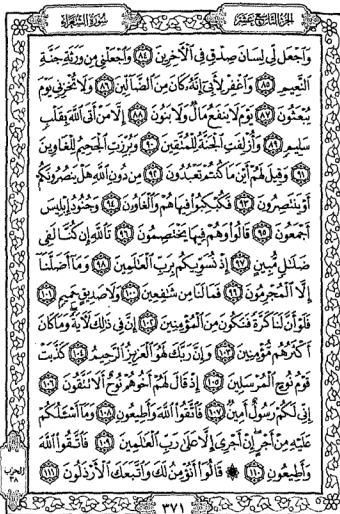 الجزء التاسع عشر
سورة الشعراء
وَاجْعَل لِّي لِسَانَ صِدْقٍ فِي الْآخِرِينَ ٨٤ وَاجْعَلْنِي مِن وَرَثَةِ جَنَّةِ
النَّعِيمِ ٨٥ وَاغْفِرْ لِأَبِي إِنَّهُ كَانَ مِنَ الضَّالِّينَ ٨٦ وَلَا تُخْزِنِي يَوْمَ
يُبْعَثُونَ ٨٧ يَوْمَ لَا يَنفَعُ مَالٌ وَلَا بَنُونَ ٨٨ إِلَّا مَنْ أَتَى اللَّهَ بِقَلْبٍ
سَلِيمٍ ٨٩ وَأُزْلِفَتِ الْجَنَّةُ لِلْمُتَّقِينَ ٩٠ وَبُرِّزَتِ الْجَحِيمُ لِلْغَاوِينَ
٩١ وَقِيلَ لَهُمْ أَيْنَ مَا كُنتُمْ تَعْبُدُونَ ٩٢ مِن دُونِ اللَّهِ هَلْ يَنصُرُونَكُمْ
أَوْ يَنتَصِرُونَ ٩٣ فَكُبْكِبُوا فِيهَا هُمْ وَالْغَاوُونَ ٩٤ وَجُنُودُ إِبْلِيسَ
أَجْمَعُونَ ٩٥ قَالُوا وَهُمْ فِيهَا يَخْتَصِمُونَ ٩٦ تَاللَّهِ إِن كُنَّا لَفِي
ضَلَالٍ مُّبِينٍ ٩٧ إِذْ نُسَوِّيكُم بِرَبِّ الْعَالَمِينَ ٩٨ وَمَا أَضَلَّنَا
إِلَّا الْمُجْرِمُونَ ٩٩ فَمَا لَنَا مِن شَافِعِينَ ١٠٠ وَلَا صَدِيقٍ حَمِيمٍ ١٠١
فَلَوْ أَنَّ لَنَا كَرَّةً فَنَكُونَ مِنَ الْمُؤْمِنِينَ ١٠٢ إِنَّ فِي ذَلِكَ لَآيَةً وَمَا كَانَ
أَكْثَرُهُم مُّؤْمِنِينَ ١٠٣ وَإِنَّ رَبَّكَ لَهُوَ الْعَزِيزُ الرَّحِيمُ ١٠٤ كَذَّبَتْ
قَوْمُ نُوحٍ الْمُرْسَلِينَ ١٠٥ إِذْ قَالَ لَهُمْ أَخُوهُمْ نُوحٌ أَلَا تَتَّقُونَ ١٠٦
إِنِّي لَكُمْ رَسُولٌ أَمِينٌ ١٠٧ فَاتَّقُوا اللَّهَ وَأَطِيعُونِ ١٠٨ وَمَا أَسْأَلُكُمْ
عَلَيْهِ مِنْ أَجْرٍ إِنْ أَجْرِيَ إِلَّا عَلَى رَبِّ الْعَالَمِينَ ١٠٩ فَاتَّقُوا اللَّهَ
وَأَطِيعُونِ ١١٠ ۞ قَالُوا أَنُؤْمِنُ لَكَ وَاتَّبَعَكَ الْأَرْذَلُونَ ١١١
الحزب
٣٨
٣٧١